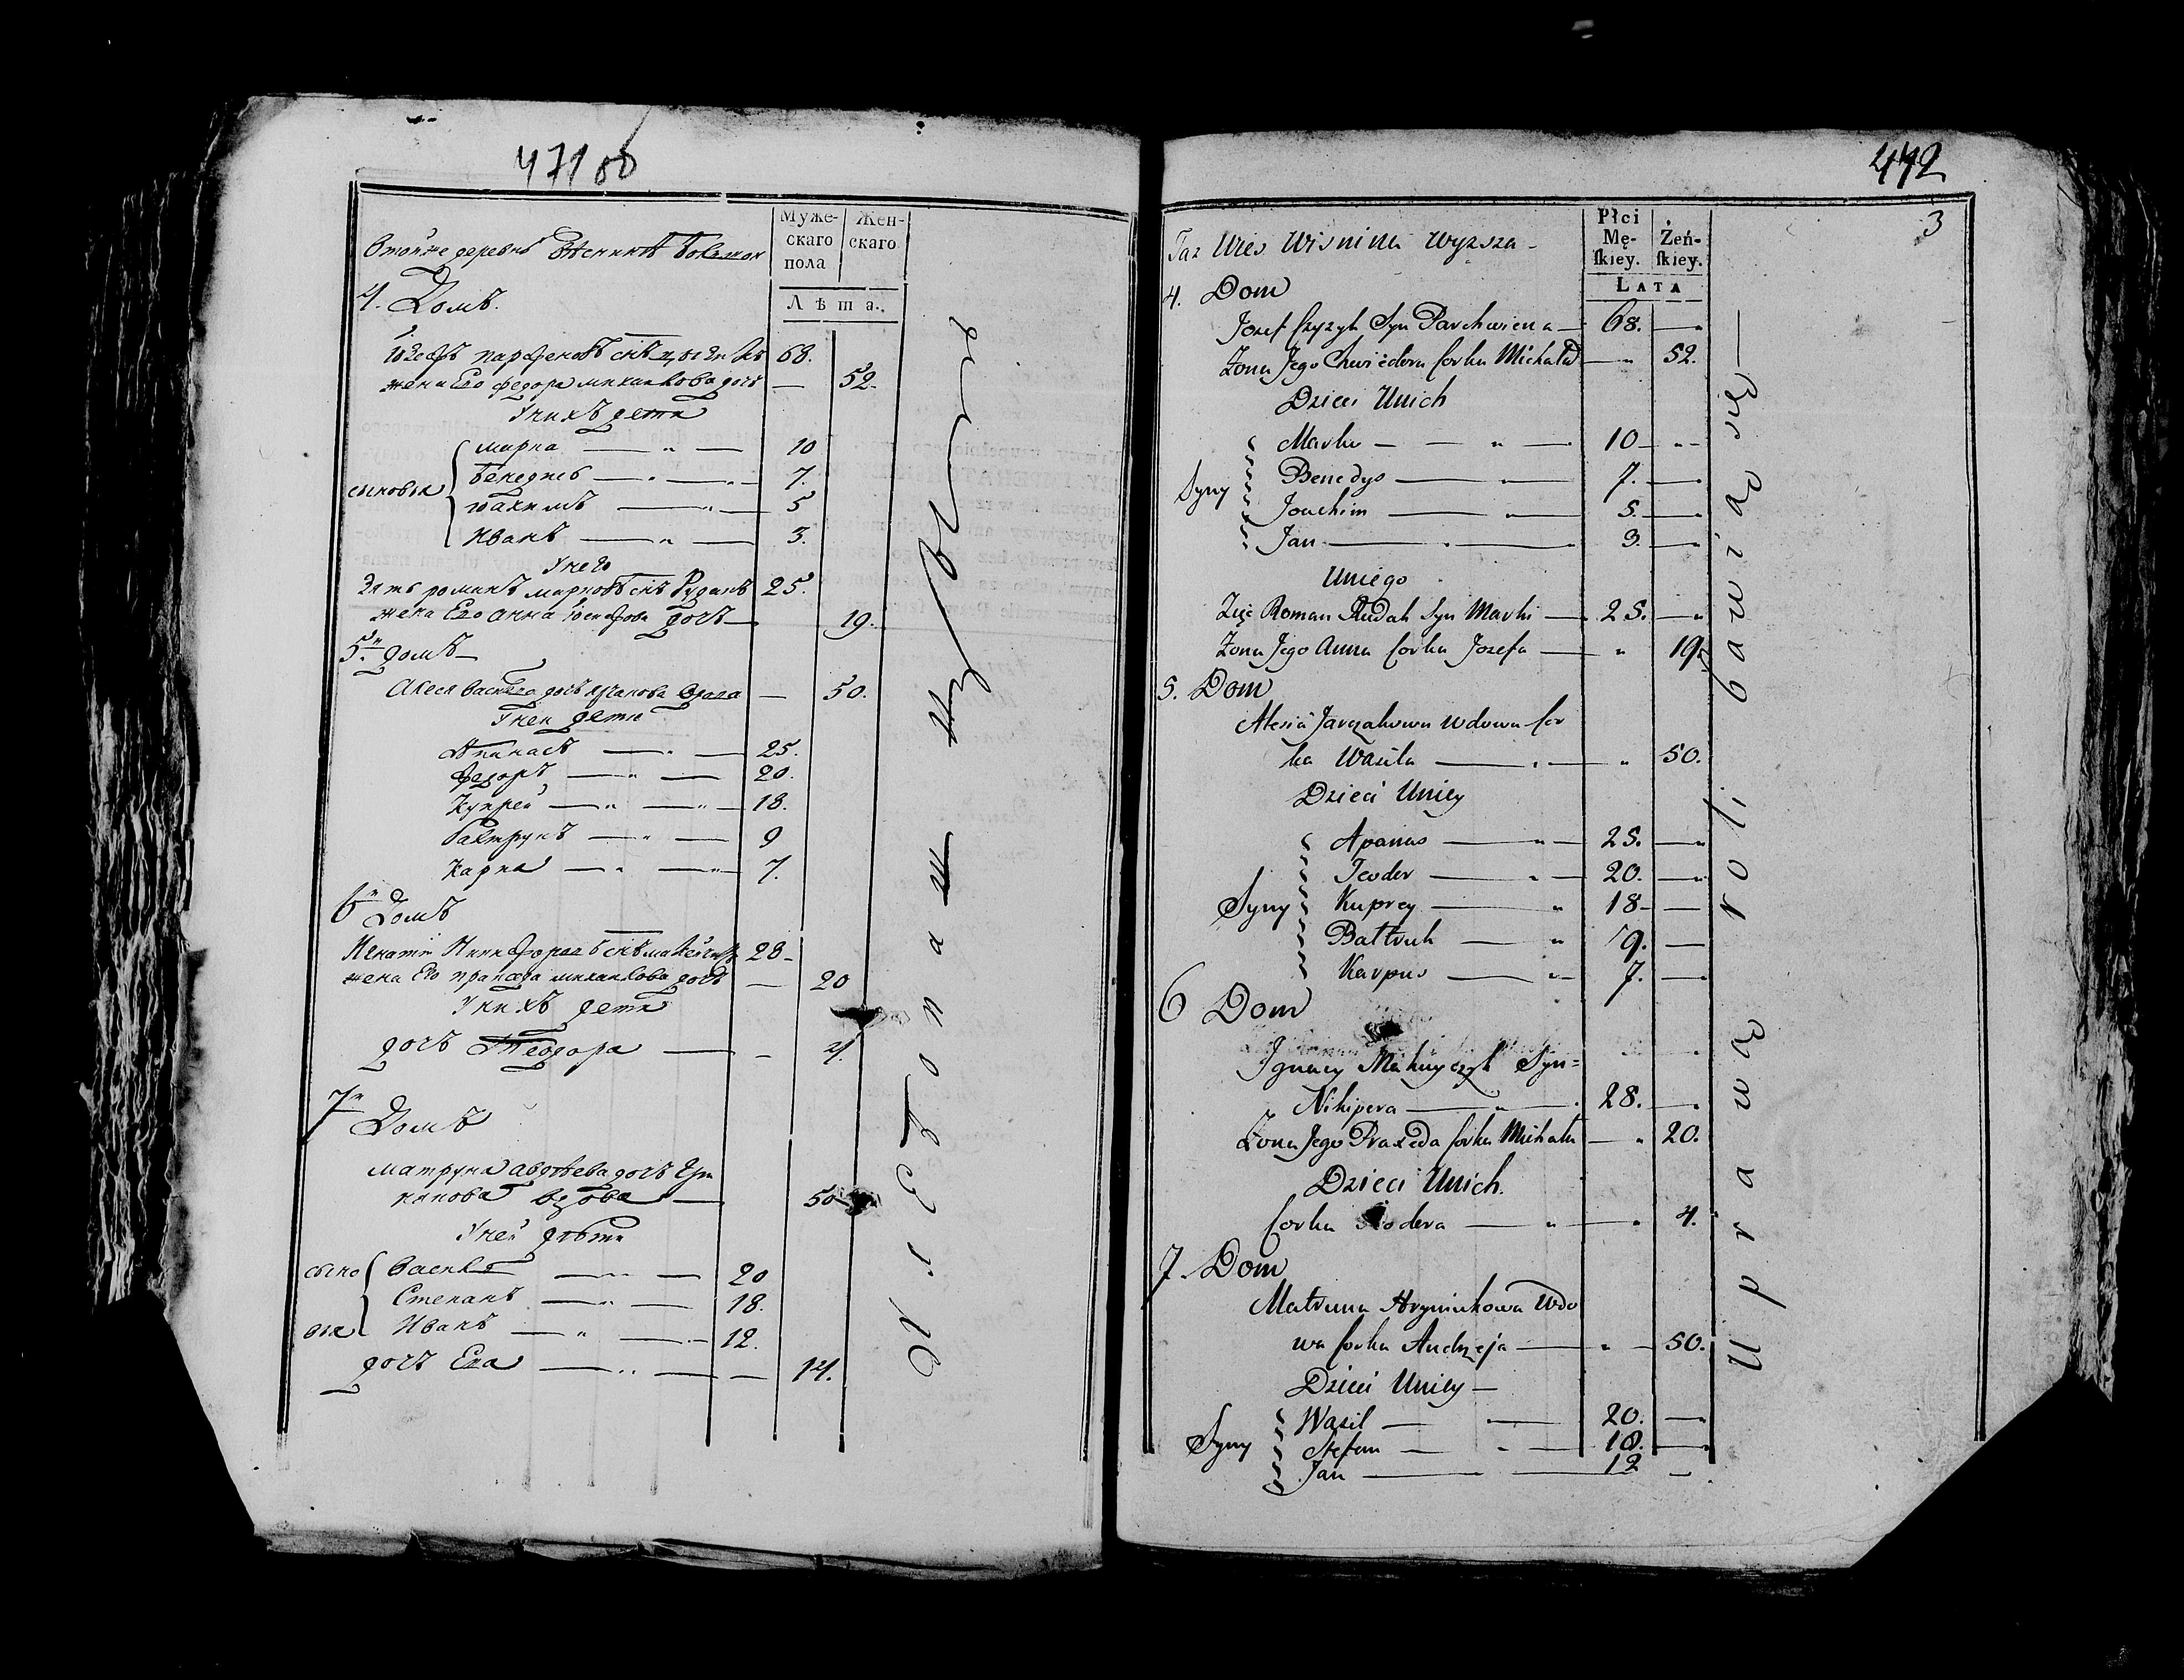 47180
Втойже деревнѣ
Муже-
скаго
пола
Жен-
скаго
Лѣта.
4. Домъ.
68.
жена Его федора михайлова дочь — 52.
У нихъ дети
сыновья
марка — 10
бенедисъ — 7.
юахимъ — 5
Иванъ — 3.
У него
Зять романъ марковъ снъ Рудакъ 25.
жена Его анна юсифова дочь — 19.
5й домъ
50.
У неи дети
Апанасъ — 25.
Федоръ — 20.
Купрей — 18.
балтрукъ — 9
Карпа — 7.
6й Домъ
28
жена Его праседа михайлова дочь — 20
У нихъ дети
дочь Теодора — 4.
7й Домъ
матруна авдѣева дочь Гри
нюкова вдова — 50
У неи дѣти
сыно
вья
Василь — 20
Степанъ — 18.
Иванъ — 12.
дочь Ева — 14.
442
3
Taz Wies Wisnina Wyzsza
Płci
Mę-
skiey.
Żeń-
skiey.
LATA
4. Dom
Jozef Syn Parchwiena — 68. —
Zona Jego Chwiedora Corka Michała — 52.
Dzieci Unich
Syny
Marko — 10 —
Benedys — 7. —
Joachim — 5. —
Jan — 3. —
Uniego
Zięć Roman Rudak Syn Marki — 25. —
Zona Jego Anna Corka Jozefa — 19.
5. Dom
Alesia Jarczakowa Wdowa Cor
ka Wasila — 50.
Dzieci Uniey
Syny
Apanas — 25. —
Teoder — 20. —
Kuprey — 18 —
Bałtruk — 9. —
Karpus — 7. —
6 Dom
Ignacy Makuyczyk Syn=
Nikipera — 28. —
Zona Jego Praxeda Corka Michała — 20.
Dzieci Unich.
Corka Teodora — 4.
7. Dom
Matruna Hryniukowa Wdo
wa Corka Andrzeja — 50.
Dzieci Uniey —
Syny
Wasil — 20. —
Stefan — 18. —
Jan — 12 —
Uprawą roli bawią się —